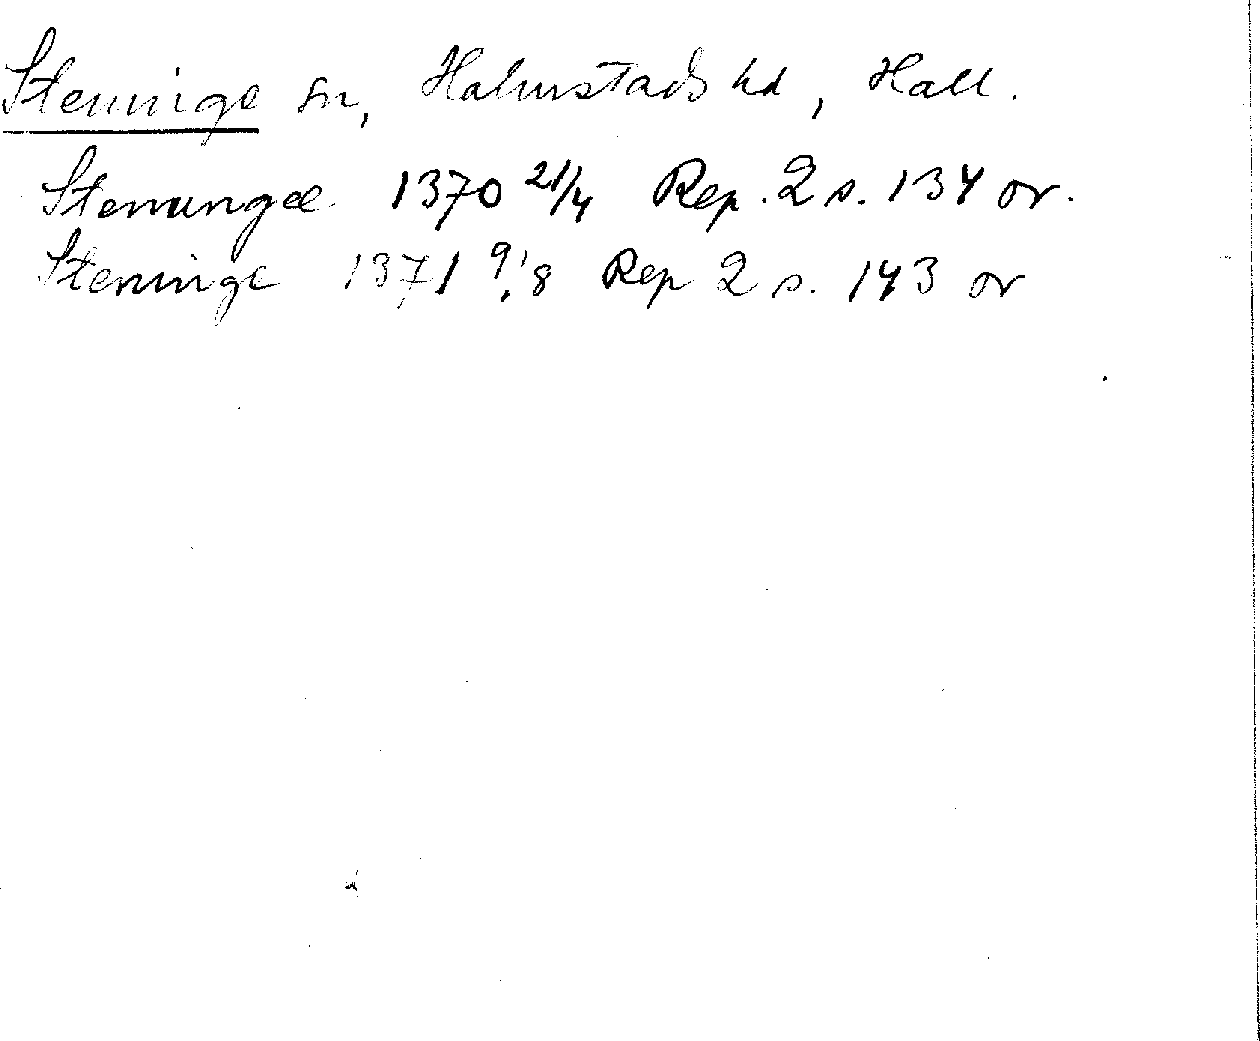 Steninge sn, Halmstads hd, Hall.
Stenungæ 1370 21/4 Rep. 2 s. 134 or.
Steninge 1371 9/8 Rep 2 s. 143 or